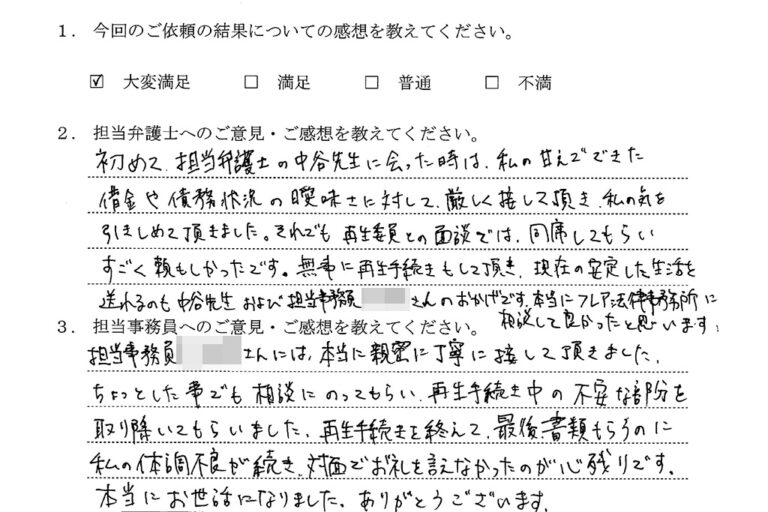 1. 今回のご依頼の結果についての感想を教えてください。
☑ 大変満足 □ 満足 □ 普通 □ 不満
2. 担当弁護士へのご意見・ご感想を教えてください。
初めて、担当弁護士の中谷先生に会った時は、私の甘えでできた
借金や債務状況の曖昧さに対して、厳しく接して頂き、私の気を
引きしめて頂きました。それでも再生委員との面談では、同席してもらい
すごく頼もしかったです。無事に再生手続きもして頂き、現在の安定した生活を
送れるのも中谷先生および担当事務員 さんのおかげです。本当にフレア法律事務所に
相談して良かったと思います。
3. 担当事務員へのご意見・ご感想を教えてください。
担当事務員 さんには、本当に親密に丁寧に接して頂きました。
ちょっとした事でも相談にのってもらい、再生手続き中の不安な部分を
取り除いてもらいました。再生手続きを終えて、最後、書類もらうのに
私の体調不良が続き、対面でお礼を言えなかったのが心残りです。
本当にお世話になりました。ありがとうございます。